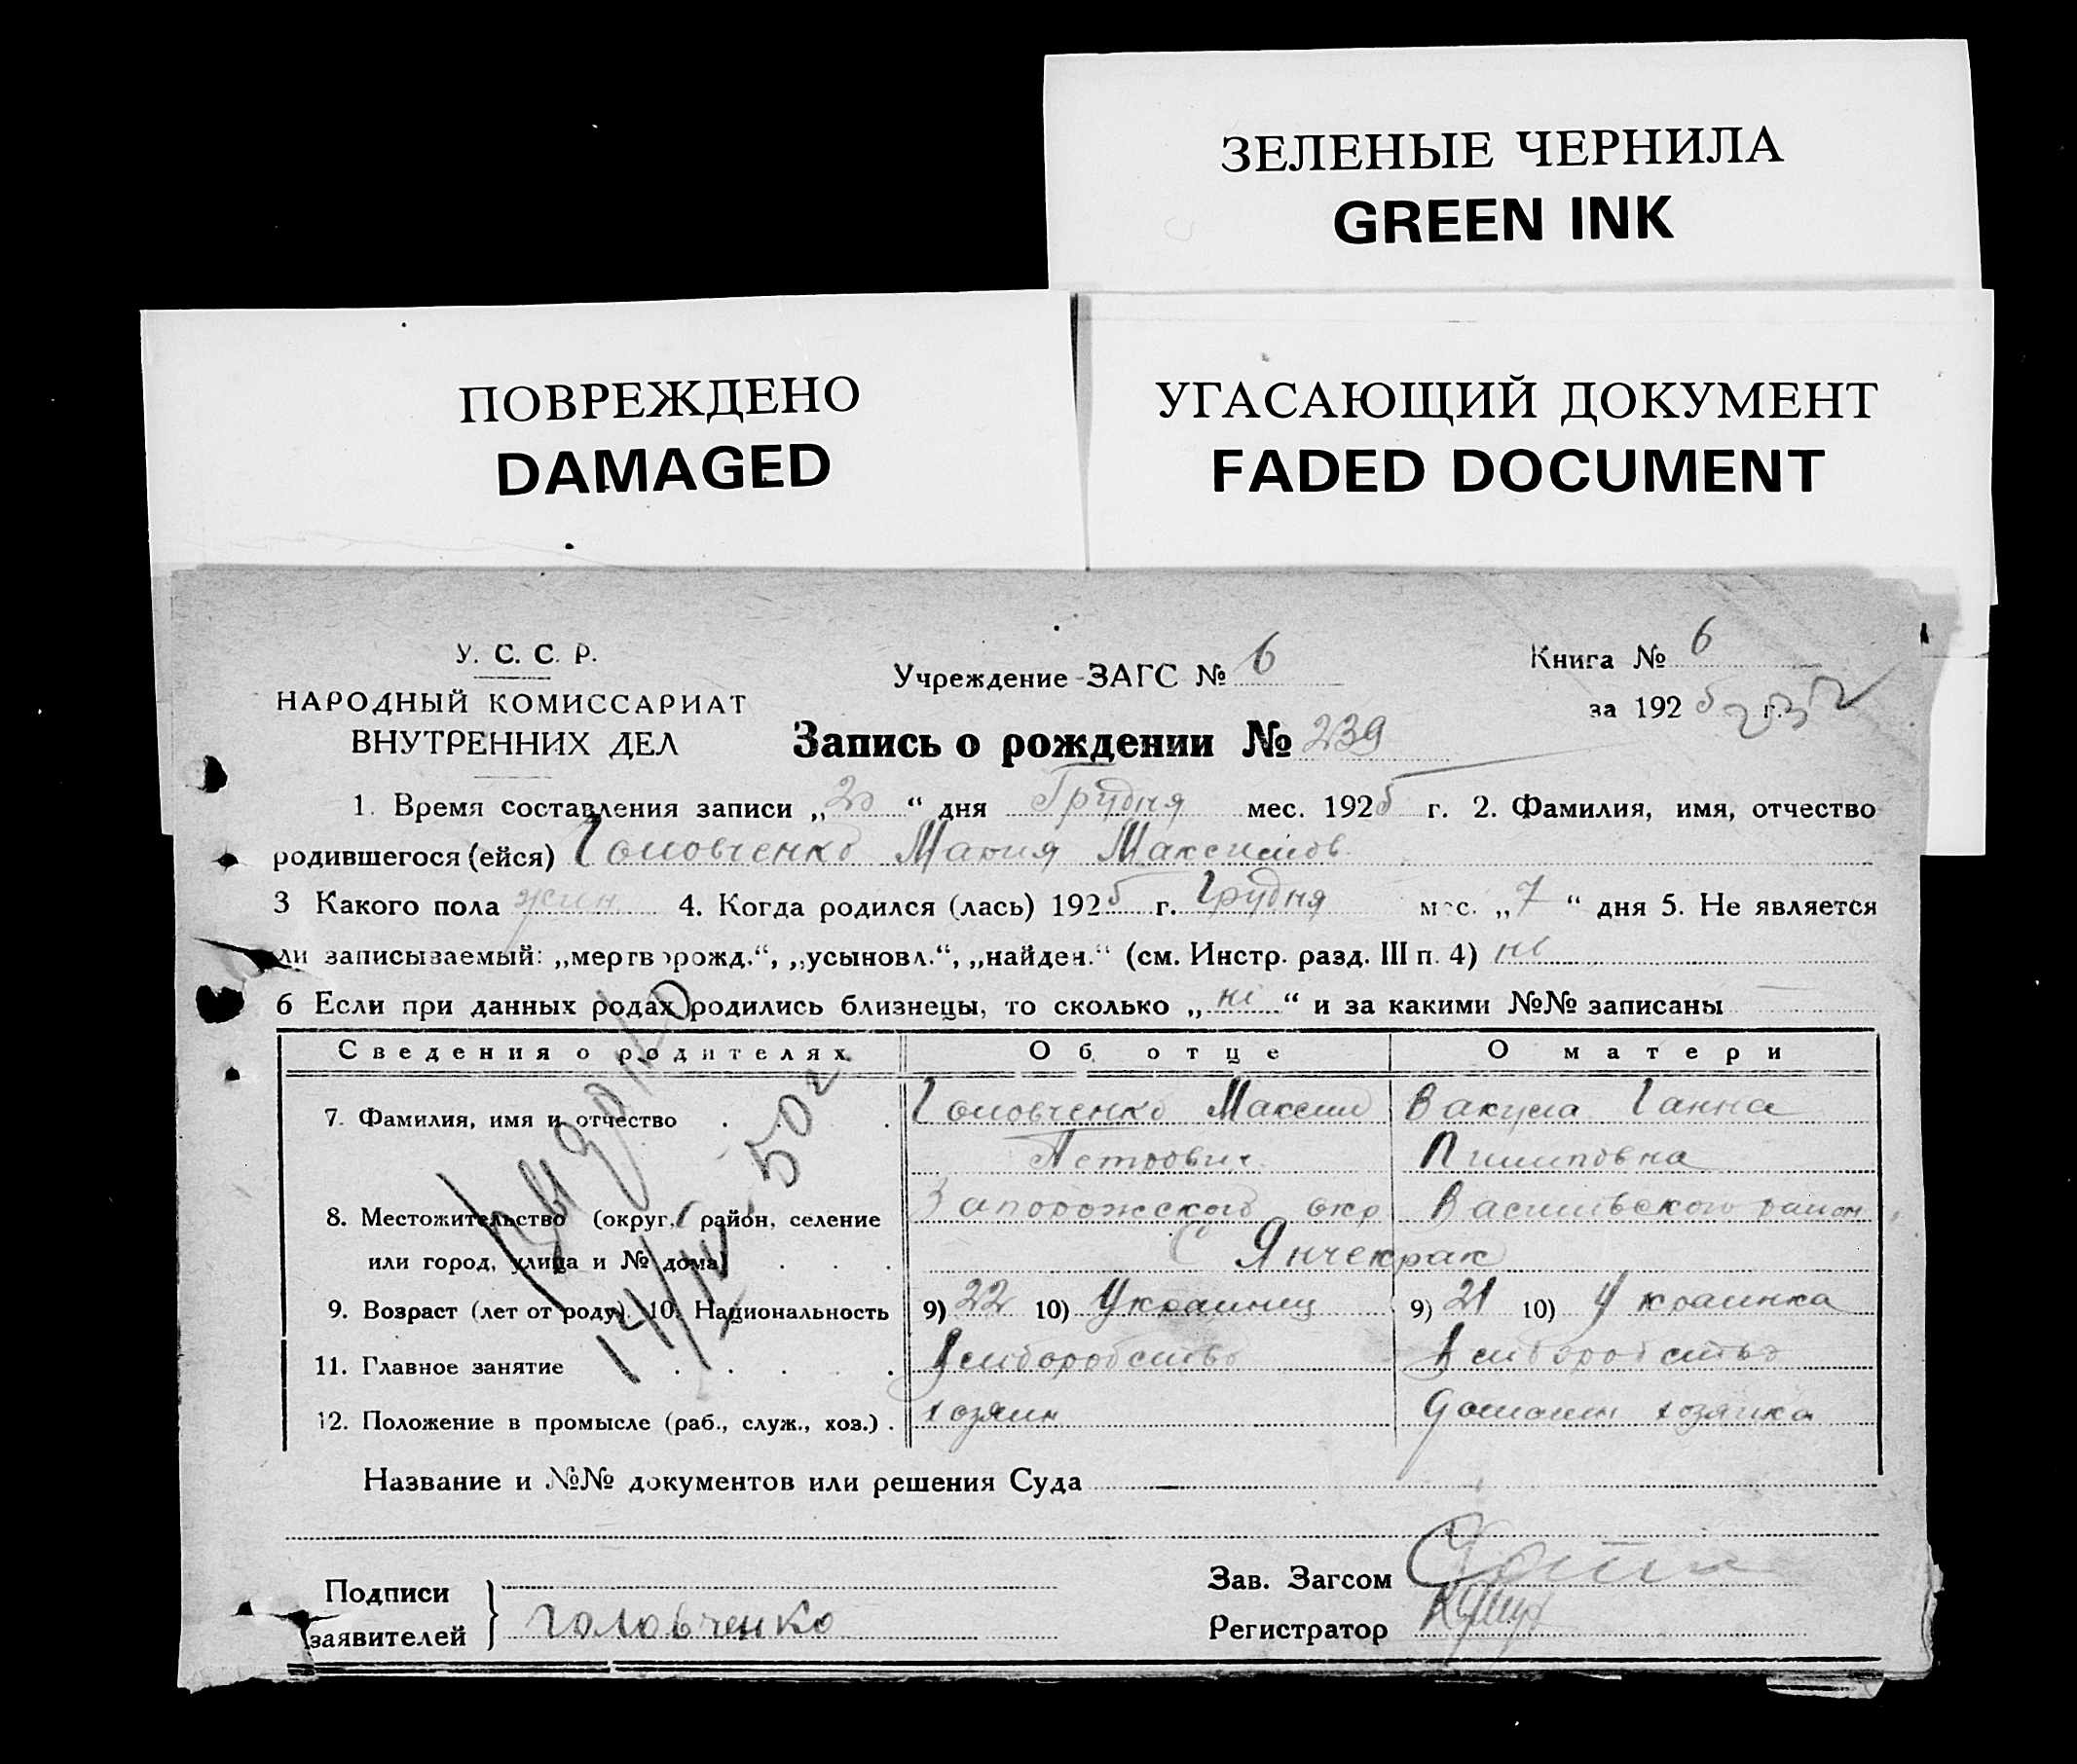 ЗЕЛЕНЫЕ ЧЕРНИЛА
GREEN INK
ПОВРЕЖДЕНО
DAMAGED
УГАСАЮЩИЙ ДОКУМЕНТ
FADED DOCUMENT
У. С. С. Р.
НАРОДНЫЙ КОМИССАРИАТ
ВНУТРЕННИХ ДЕЛ
Учреждение ЗАГС № 6
Книга № 6
за 1925 г.
Запись о рождении № 239
1. Время составления записи „20“ дня Грудня мес. 1925 г. 2. Фамилия, имя, отчество
родившегося (ейся) Головченко Мария Максимов
3 Какого пола жін 4. Когда родился (лась) 1925 г. Грудня мес. „7“ дня 5. Не является
ли записываемый: „мертворожд.“, „усыновл.“, „найден.“ (см. Инстр. разд. III п. 4) ні
6 Если при данных родах родились близнецы, то сколько „ні“ и за какими №№ записаны
Сведения о родителях Об отце О матери
7. Фамилия, имя и отчество Головченко Максим Вакула Ганна
Петрович Пилиповна
8. Местожительство (округ, район, селение Запорожского окр Василівского район
или город, улица и № дома) С Янчекрак
9. Возраст (лет от роду). 10. Национальность 9) 22 10) Украинец 9) 21 10) Украинка
11. Главное занятие Хлиборобство Хлиборобство
12. Положение в промысле (раб., служ., хоз.) хозяин домашн хозяйка
Выдано
14/IV 50г
Название и №№ документов или решения Суда
Подписи
заявителей
Головченко
Зав. Загсом
Регистратор